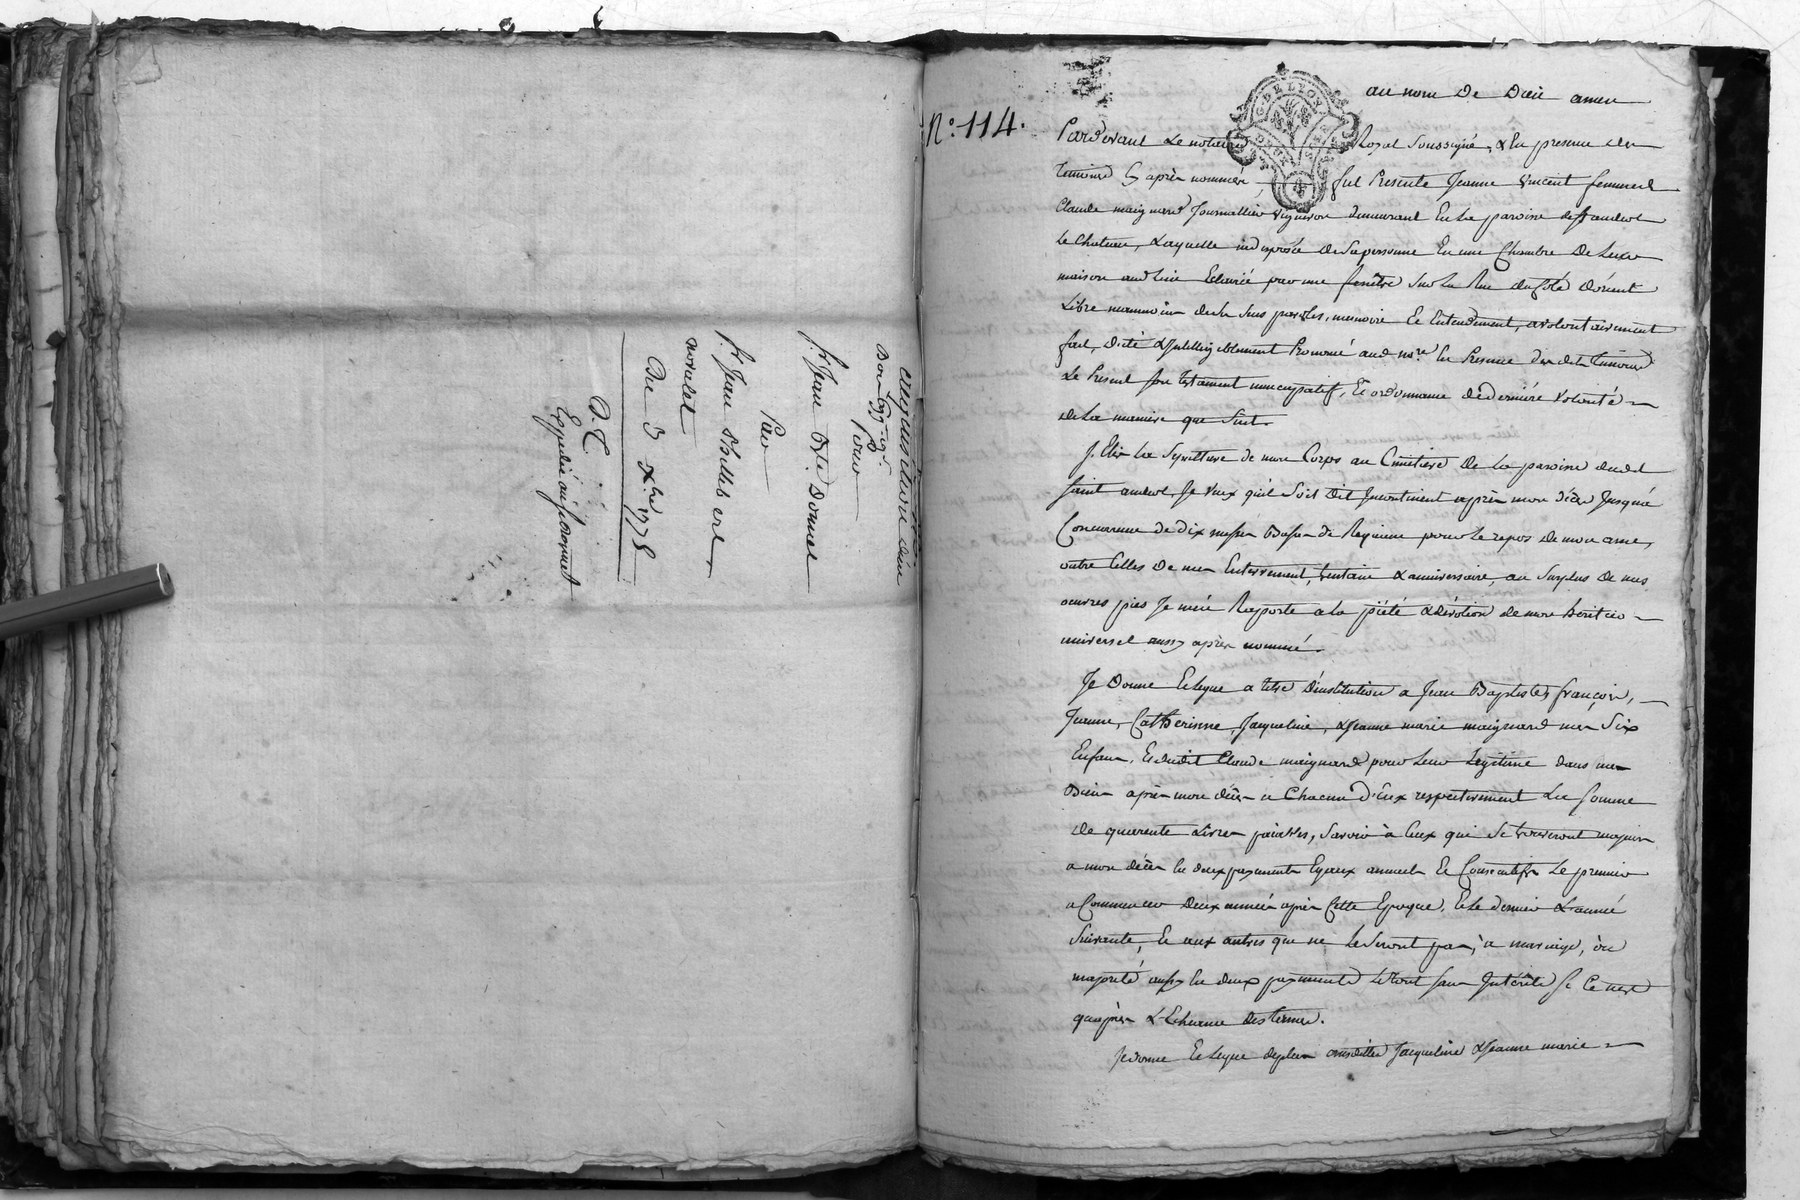 acquisition d'une
pour
Sr. Jean Bte. Donnet
Par
Sr. Jean
Du 3 Xbre. 1778
D. C.
Expedié au Sr. Donnet
N°. 114.
G. DE LYON
au nom De Dieu amen
Pardevant Le notaire Royal Soussigné, & En presence des
temoins Cy après nommés, fut Presente Jeanne vincent femme de
Claude maignard Journallier vigneron demeurant En La paroisse de St andeol
Le Chateau, Laquelle indisposée de Sa personne En une Chambre De Leur
maison aud Lieu Eclairée par une fenêtre Sur La Rue du Côté d'orient
Libre neanmoins de Ses Sens paroles, memoire Et Entendement, a volontairement
fait, Dicté & Intelligiblement Prononcé aud nore. En Presence des dits temoins
Le Present Son testament nuncupatif, Et ordonnance de derniére volonté
de La maniere que Suit.
J'Elis La Sepulture de mon Corps au Cimetiere De La paroisse dudit
Saint andeol, Je veux qu'il Soit Dit Incontinent après mon décès Jusqu'a
Concurrence de Dix messes Basses de Requiem pour Le repos De mon ame,
outre Celles De mes Enterrement, trentaine & anniversaire, au Surplus De mes
oeuvres pies Je m'en Raporte a La piété & dévotion de mon heritier
universel aussy après nommé.
Je Donne Et Legue a titre D'institution a Jean Baptiste, françois,
Jeanne, Catherinne, Jacqueline, & Jeanne marie maignard mes Six
Enfans, Et dudit Claude maignard pour Leur Legitime dans mes
Biens après mon décès a Chacun D'Eux respectivement La Somme
De quarente Livres païables, Savoir à Ceux qui Se trouveront majeurs
a mon décès En deux payements Egaux annuels Et Consecutifs Le premier
a Commencer Deux années après Cette Epoque, Et Le dernier L'année
Suivante, Et aux autres que ne Le Seront pas, a mariage, ou
majorité aussy En deux payements Le tout Sans Intérêts Si Ce n'est
qu'après L'Echeance des termes.
Je donne Et Legue de plus Jacqueline & Jeanne marie